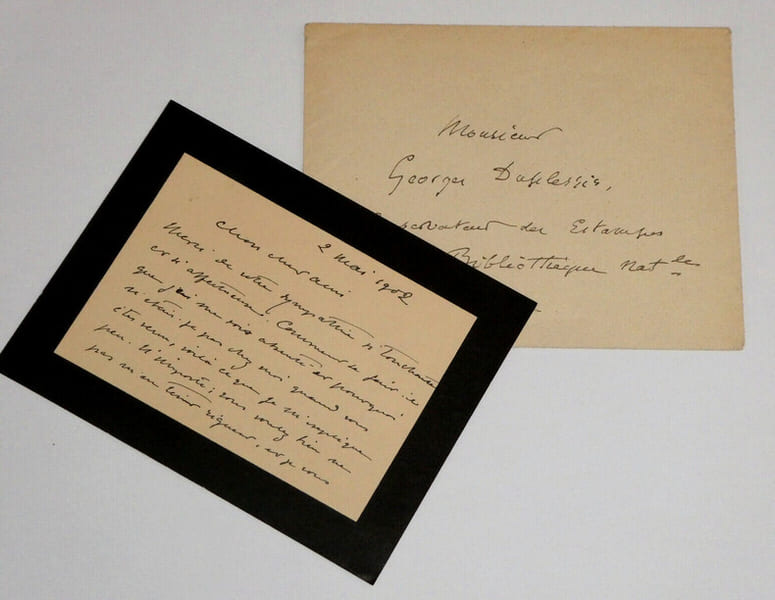 2 Mai 1902
Mon cher ami
Merci de votre sympathie si touchante
et si affectueuse. Comment se fait-il
que j'ai me sois absenté et pourquoi
n'étais-je pas chez moi quand vous
êtes venu, voilà ce que je m'explique
peu. N'importe; vous voulez bien ne
pas m'en tenir rigueur, et je vous
Monsieur
Georges Duplessis,
Conservateur des Estampes
Bibliothèque Nat^le